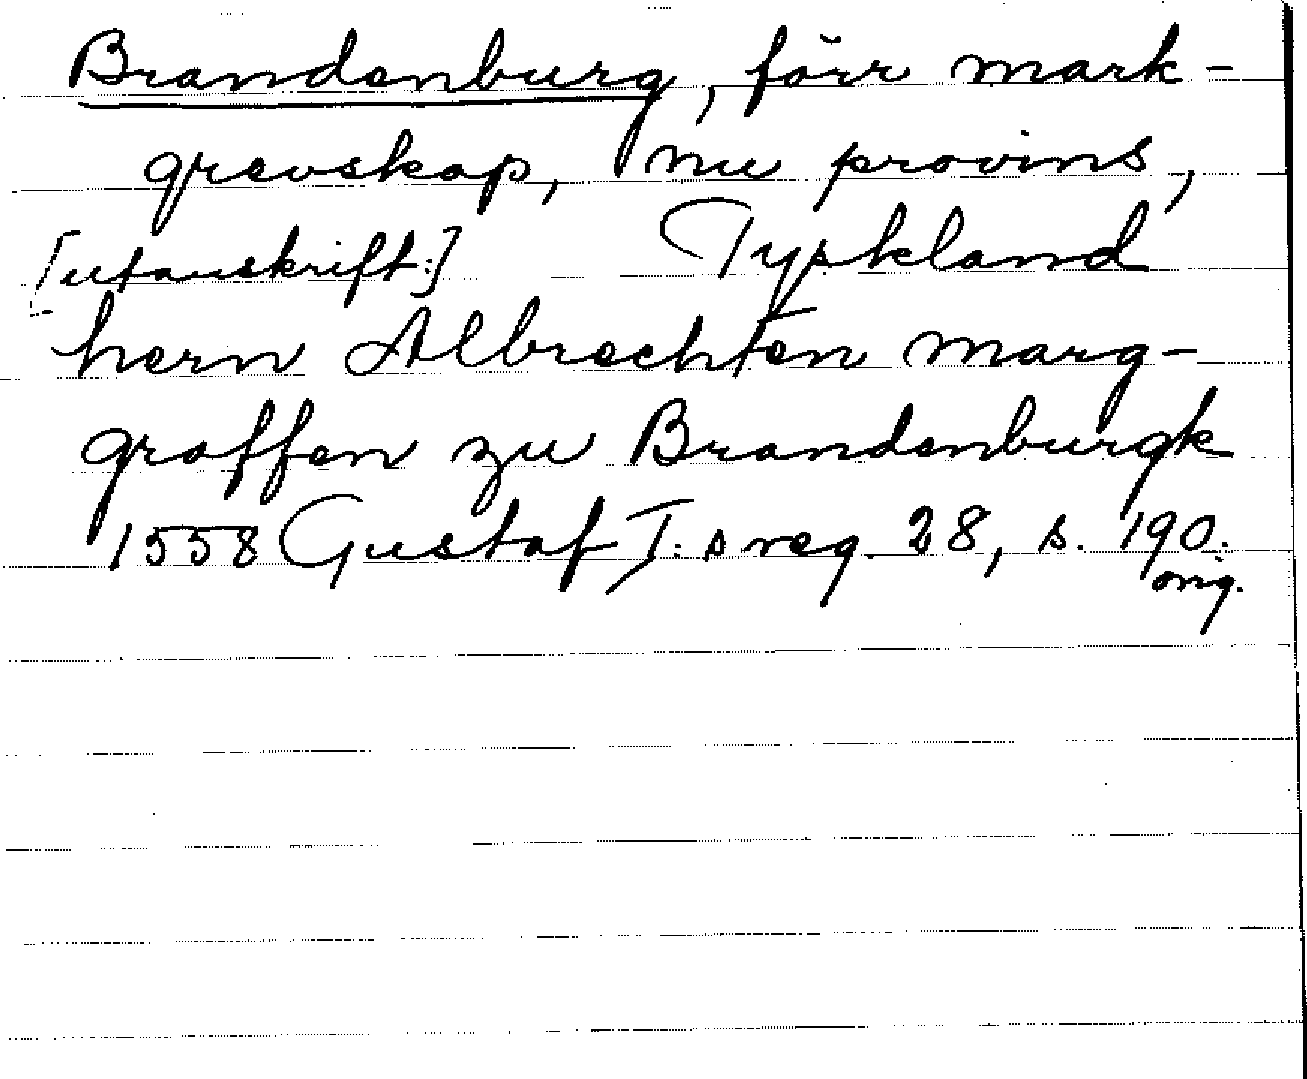 Brandenburg, förr mark-
grevskap, nu provins,
[utanskrift:] Tyskland
hern Albrechten marg-
groffen zu Brandenburgk
1558 Gustaf I:s reg. 28, s. 190.
orig.